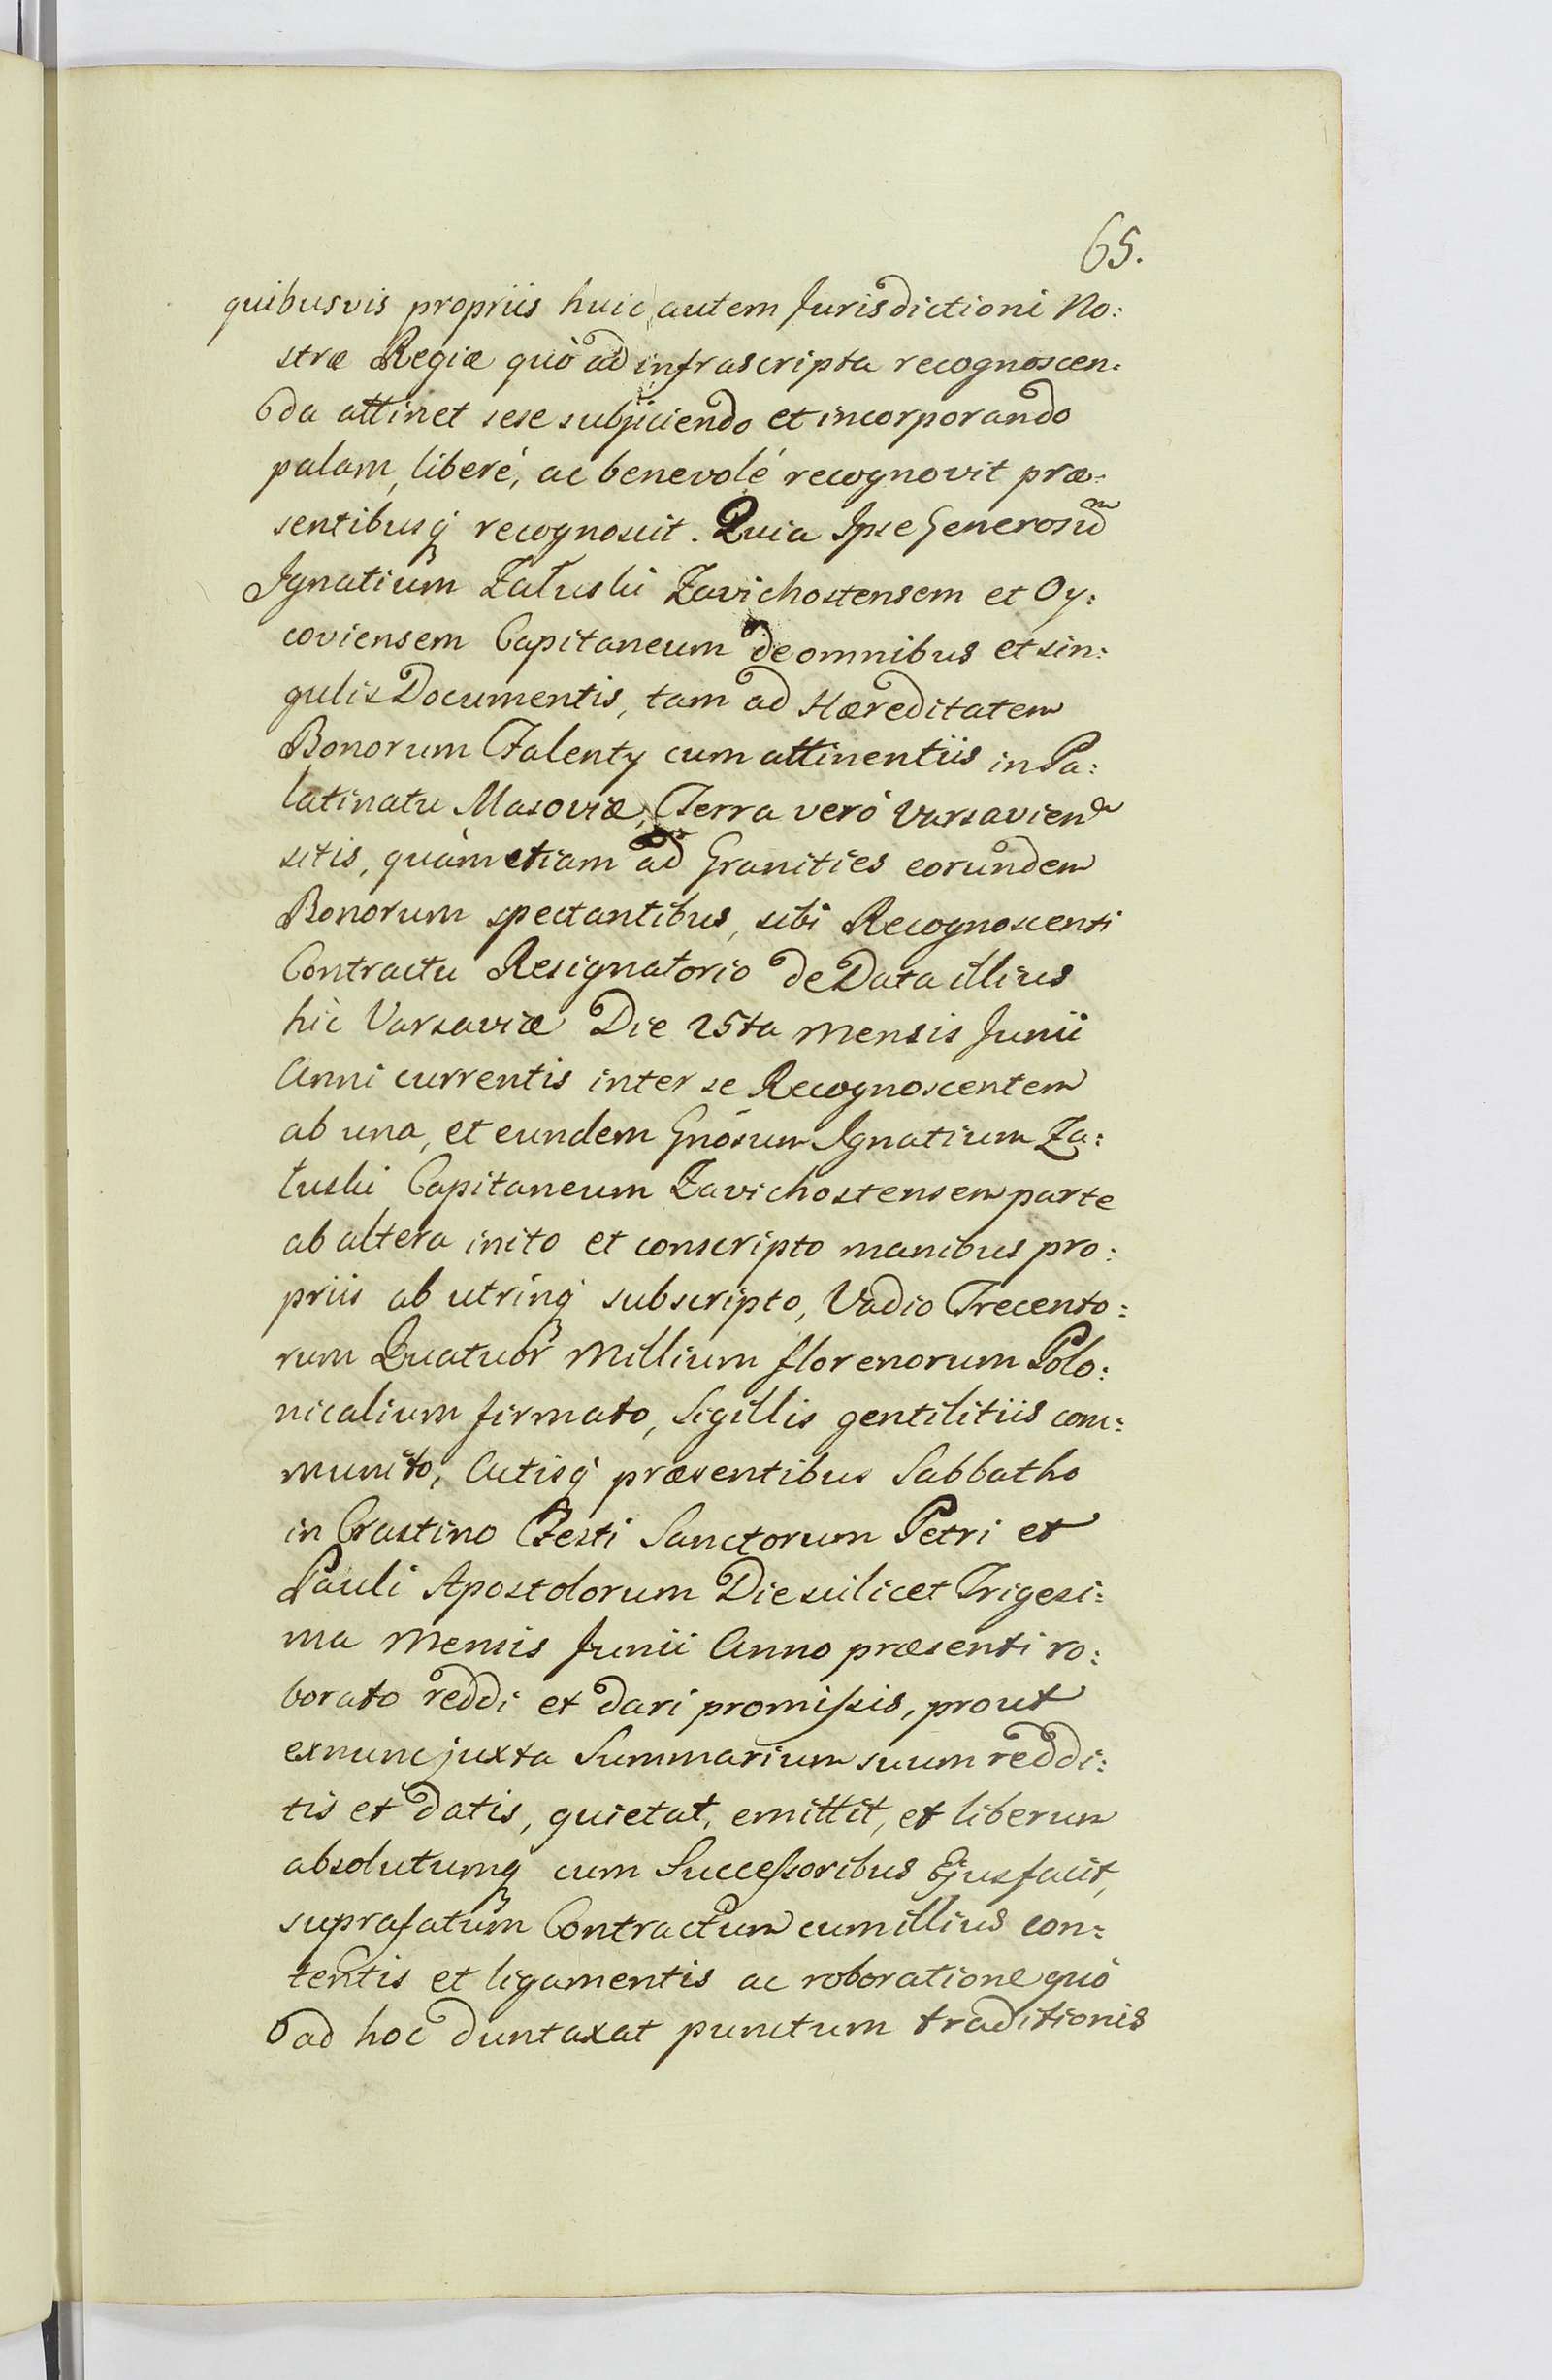 65.
quibusvis propriis huic autem Jurisdictioni No:
stræ Regiæ quò ad infrascripta recognoscen:
da attinet sese subjiciendo et incorporando
palam, liberé, ac benevolé recognovit præ:
sentibusq́ recognoscit. Quia Ipse Generosum
Ignatium Załuski Zavichostensem et Oy:
coviensem Capitaneum de omnibus et sin:
gulis Documentis, tam ad Hæreditatem
Bonorum Falenty cum attinentiis in Pa:
latinatu Masoviæ, Terra veró Varsavien
sitis, quàm etiam ad Granities eorundem
Bonorum spectantibus, sibi Recognoscenti
Contractu Resignatorio de Data illius
hìc Varsaviæ Die 25ta Mensis Junii
Anni currentis inter se Recognoscentem
ab una, et eundem Gnosum Ignatium Za:
łuski Capitaneum Zavichostensem parte
ab altera inito et conscripto manibus pro:
priis ab utrinq́ subscripto, Vadio Trecento:
rum Quatuor Millium florenorum Polo:
nicalium firmato, Sigillis gentilitiis com:
munito, Actisq́ præsentibus Sabbatho
in Crastino Festi Sanctorum Petri et
Pauli Apostolorum Die scilicet Trigesi:
ma Mensis Junii Anno præsenti ro:
borato reddi et dari promissis, prout
exnunc juxta Summarium suum reddi:
tis et datis, quietat, emittit, et liberum
absolutumq́ cum Successoribus Ejus facit,
suprafatum Contractum cum illius con:
tentis et ligamentis ac roboratione quò
ad hoc duntaxat punctum traditionis